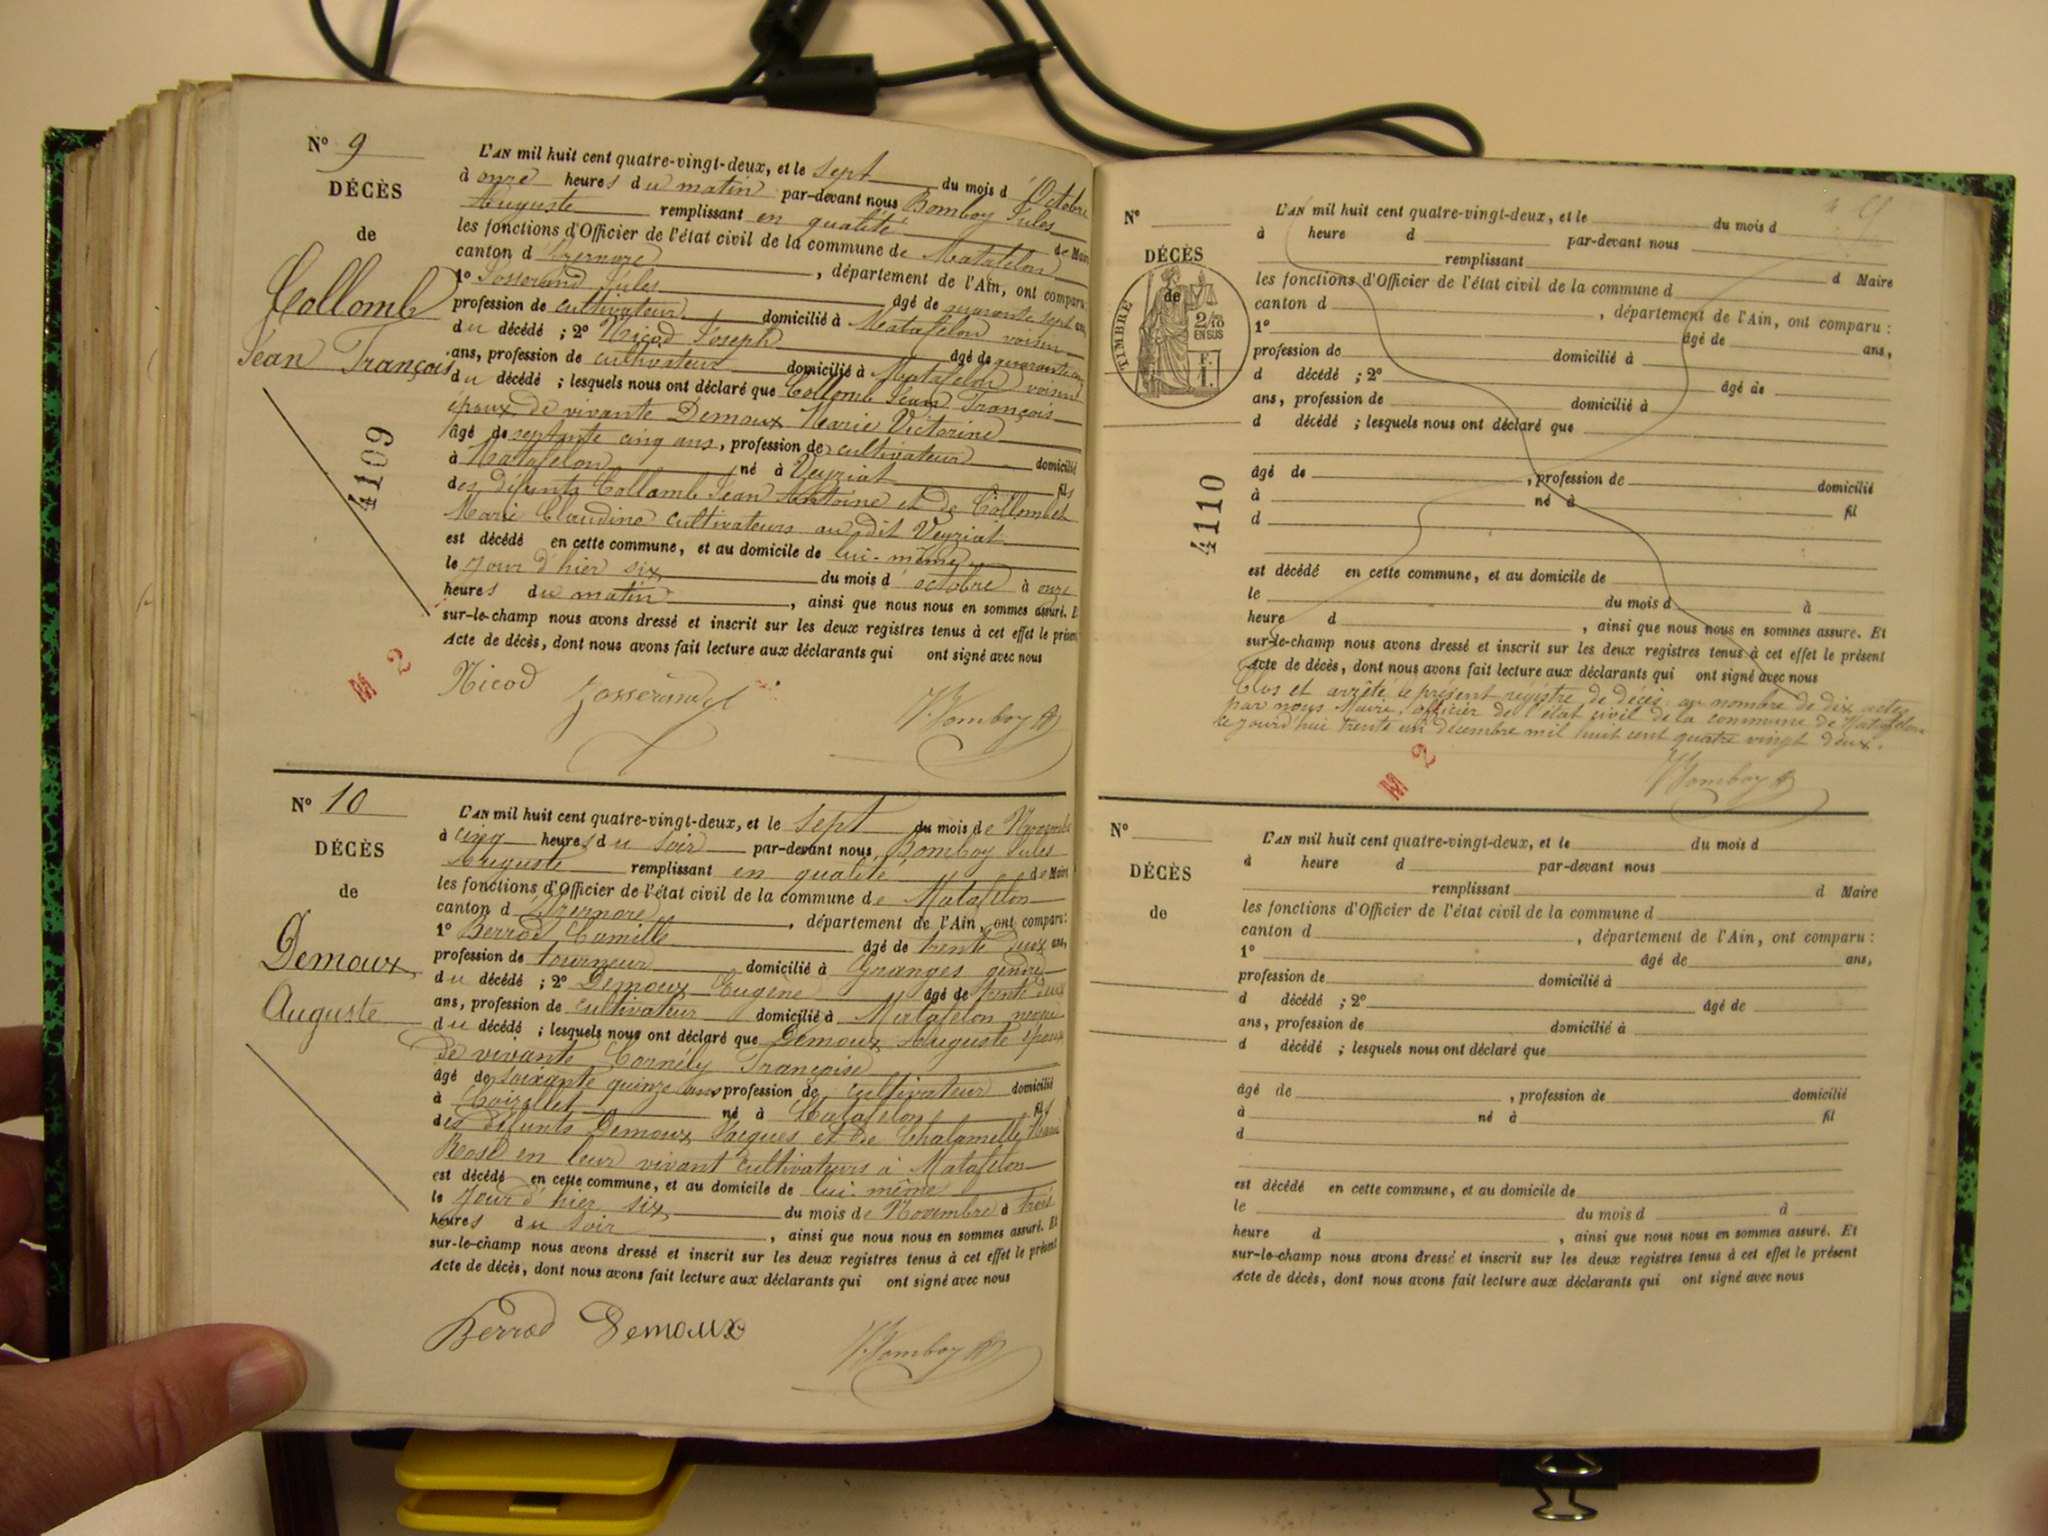 N° 9
DÉCÈS
de
Collomb
Jean François
4109
M 2
L'AN mil huit cent quatre-vingt-deux, et le sept du mois d'Octobre
à onze heures du matin par-devant nous Bomboy Jules
Auguste remplissant en qualité de Maire
les fonctions d'Officier de l'état civil de la commune de Matafelon
canton d'Izernore, département de l'Ain, ont comparu
1° Josserand Jules âgé de quarante sept ans
profession de cultivateur domicilié à Matafelon voisin
du décédé ; 2° Nicod Joseph âgé de quarante
ans, profession de cultivateur domicilié à Matafelon voisin
du décédé ; lesquels nous ont déclaré que Collomb Jean François
époux de vivante Demoux Marie Victorine
âgé de septante cinq ans, profession de cultivateur domicilié
à Matafelon né à Veyziat fils
des défunts Collomb Jean Antoine et de Collombet
Marie Claudine cultivateurs au dit Veyziat
est décédé en cette commune, et au domicile de lui-même
le jour d'hier six du mois d'octobre à onze
heures du matin, ainsi que nous nous en sommes assuré. Et
sur-le-champ nous avons dressé et inscrit sur les deux registres tenus à cet effet le présent
Acte de décès, dont nous avons fait lecture aux déclarants qui ont signé avec nous
Nicod Josserand J. Bomboy
N° 10
DÉCÈS
de
Demoux
Auguste
L'AN mil huit cent quatre-vingt-deux, et le sept du mois de Novembre
à cinq heures du soir par-devant nous Bomboy Jules
Auguste remplissant en qualité de Maire
les fonctions d'Officier de l'état civil de la commune de Matafelon
canton d'Izernore, département de l'Ain, ont comparu :
1° Berrod Camille âgé de trente deux ans,
profession de tourneur domicilié à Granges gendre
du décédé ; 2° Demoux Eugène âgé de trente deux
ans, profession de cultivateur domicilié à Matafelon neveu
du décédé ; lesquels nous ont déclaré que Demoux Auguste époux
de vivante Cornély Françoise
âgé de soixante quinze ans, profession de cultivateur domicilié
à Coirellet né à Matafelon fils
des défunts Demoux Jacques et de Chalamelle Marie
Rose en leur vivant cultivateurs à Matafelon
est décédé en cette commune, et au domicile de lui-même
le jour d'hier six du mois de Novembre à trois
heures du soir, ainsi que nous nous en sommes assuré. Et
sur-le-champ nous avons dressé et inscrit sur les deux registres tenus à cet effet le présent
Acte de décès, dont nous avons fait lecture aux déclarants qui ont signé avec nous
Berrod Demoux J. Bomboy
N°
DÉCÈS
de
TIMBRE
2/10
EN SUS
F.
1.
4110
L'AN mil huit cent quatre-vingt-deux, et le du mois d
à heure d par-devant nous
remplissant d Maire
les fonctions d'Officier de l'état civil de la commune d
canton d , département de l'Ain, ont comparu :
1° âgé de ans,
profession de domicilié à
d décédé ; 2° âgé de
ans, profession de domicilié à
d décédé ; lesquels nous ont déclaré que
âgé de , profession de domicilié
à né à fil
d
est décédé en cette commune, et au domicile de
le du mois d à
heure d , ainsi que nous nous en sommes assuré. Et
sur-le-champ nous avons dressé et inscrit sur les deux registres tenus à cet effet le présent
Acte de décès, dont nous avons fait lecture aux déclarants qui ont signé avec nous
Clos et arrêté le présent régistre de décès au nombre de dix actes
par nous Maire, officier de l'état civil de la commune de Matafelon
ce jourd'hui trente un décembre mil huit cent quatre vingt deux.
J. Bomboy
M 2
N°
DÉCÈS
de
L'AN mil huit cent quatre-vingt-deux, et le du mois d
à heure d par-devant nous
remplissant d Maire
les fonctions d'Officier de l'état civil de la commune d
canton d , département de l'Ain, ont comparu :
1° âgé de ans,
profession de domicilié à
d décédé ; 2° âgé de
ans, profession de domicilié à
d décédé ; lesquels nous ont déclaré que
âgé de , profession de domicilié
à né à fil
d
est décédé en cette commune, et au domicile de
le du mois d à
heure d , ainsi que nous nous en sommes assuré. Et
sur-le-champ nous avons dressé et inscrit sur les deux registres tenus à cet effet le présent
Acte de décès, dont nous avons fait lecture aux déclarants qui ont signé avec nous